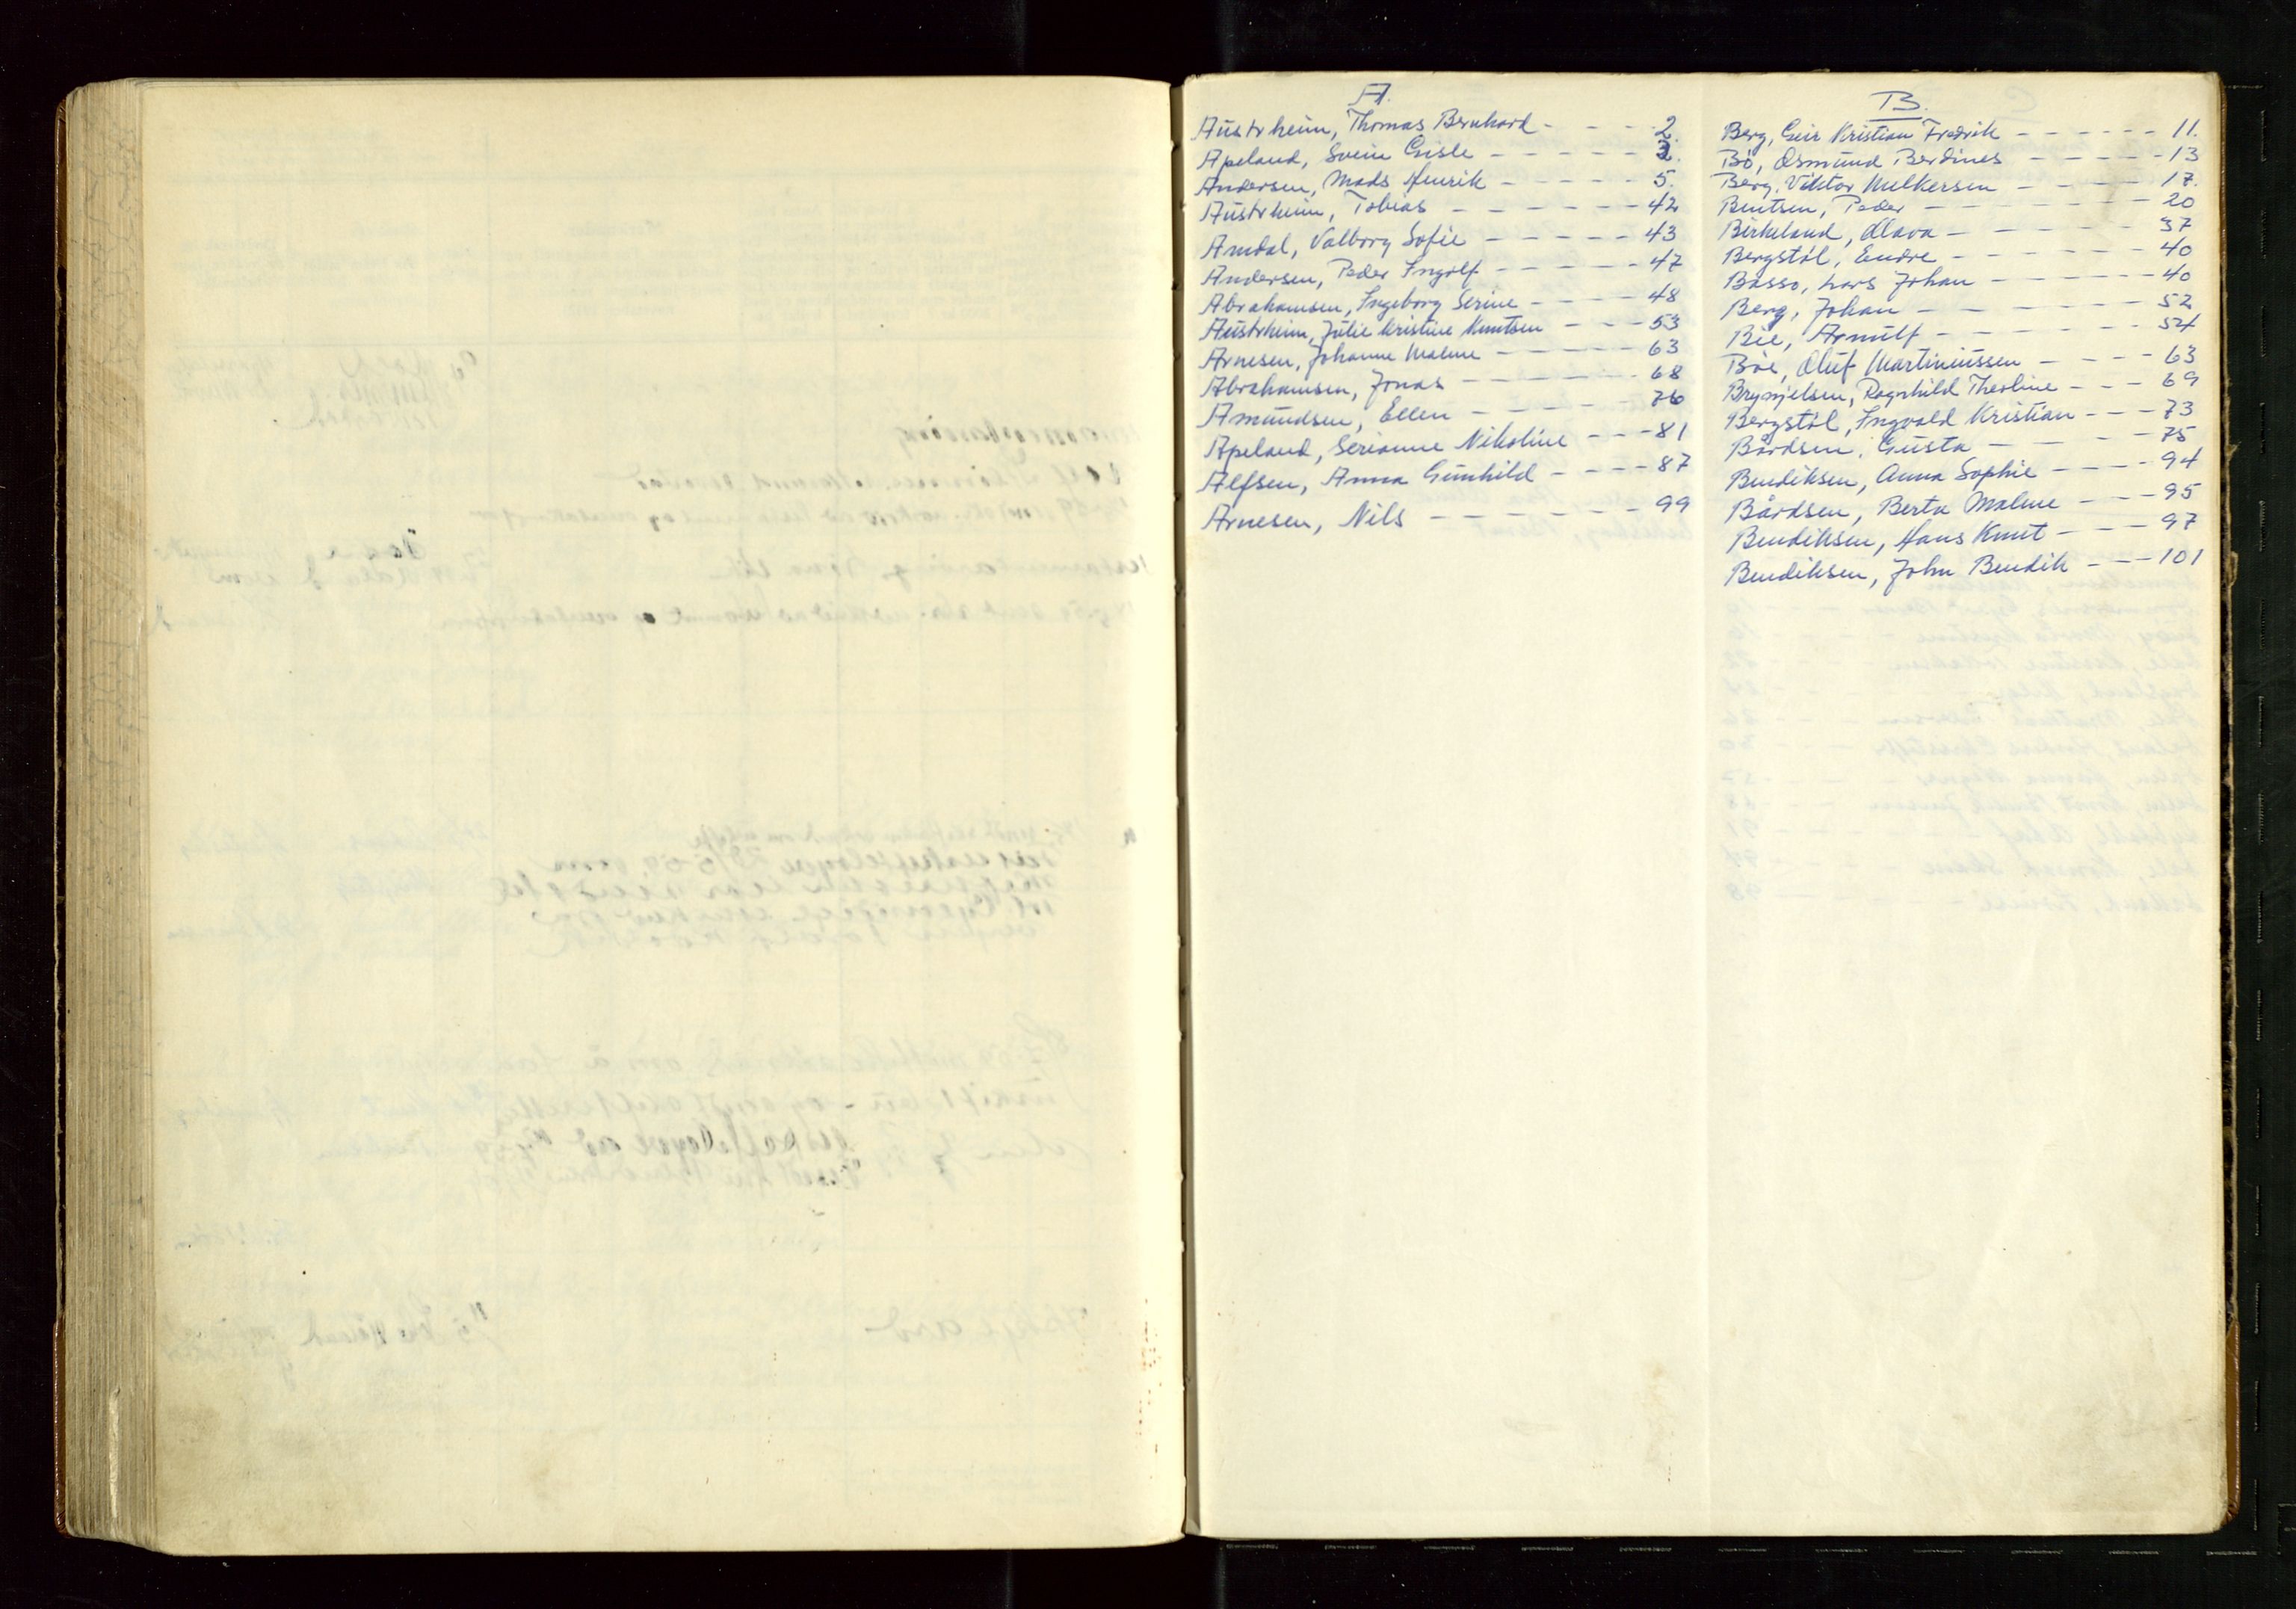 A.
Austrheim, Thomas Bernhard - - - - 2.
Apeland, Svein Gisle - - - - - 3.
Andersen, Mads Henrik - - - - - 5.
Austrheim, Tobias - - - - - - 42
Amdal, Valborg Sofie - - - - - 43
Andersen, Peder Ingolf - - - - - 47
Abrahamsen, Ingeborg Serine - - - - 48
Austrheim, Julie Kristine Knutsen - - - 53
Arnesen, Johanne Malene - - - - - 63
Abrahamsen, Jonas - - - - - - 68
Amundsen, Ellen - - - - - 76
Apeland, Serianne Nikoline - - - 81
Alfsen, Anna Gunhild - - - - 87
Arnesen, Nils - - - - - - - 99
B.
Berg, Geir Kristian Fredrik - - - - - - 11.
Bö, Osmund Berdines - - - - - 13
Berg, Viktor Melkersen - - - - - 17.
Bentsen, Peder - - - - - - - 20
Birkeland, Olava - - - - - - 37
Bergstöl, Endre - - - - - - 40
Basso, Lars Johan - - - - - - 40
Berg, Johan - - - - - - - 52
Bie, Arnulf - - - - - - - 54
Böe, Oluf Martiniussen - - - - 63
Brynjelsen, Ragnhild Theoline - - - 69
Bergstöl, Ingvald Kristian - - - 73
Bårdsen, Gusta - - - - - 75
Bendiksen, Anna Sophie - - - - 94
Bårdsen, Berta Malene - - - 95
Bendiksen, Hans Knut - - - - 97
Bendiksen, John Bendik - - - 101